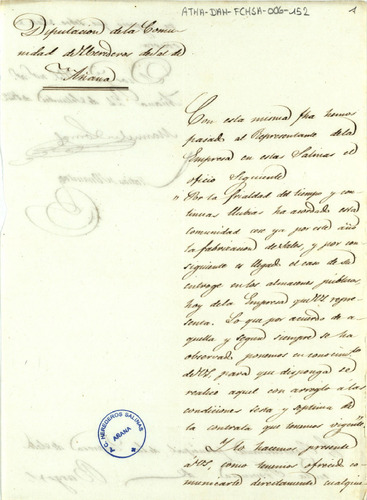 ATHA-DAH-FCHSA-006-152
1
Diputacion de la Comu
nidad de Herederos de Sal de
Añana
Con esta misma fha hemos
pasado al Representante de la
Empresa en estas Salinas el
oficio siguiente
"Por la frialdad del tiempo y con
tinuas lluvias ha acordado esta
comunidad cese ya por este año
la fabricacion de Sales, y por con
siguiente es llegado el caso de su
entrega en los almacenes públicos
hoy de la Empresa que VS repre
senta. Lo que por acuerdo de a
quella y segun siempre se ha
observado ponemos en conocimto
de VS. para que disponga se
realice aquel con arreglo a las
condiciones sesta y septima de
la contrata que tenemos vigente"
Y lo hacemos presente
a VS como tenemos ofrecido
comunicarle directamente cualquier
A.C. HEREDEROS SALINAS
AÑANA